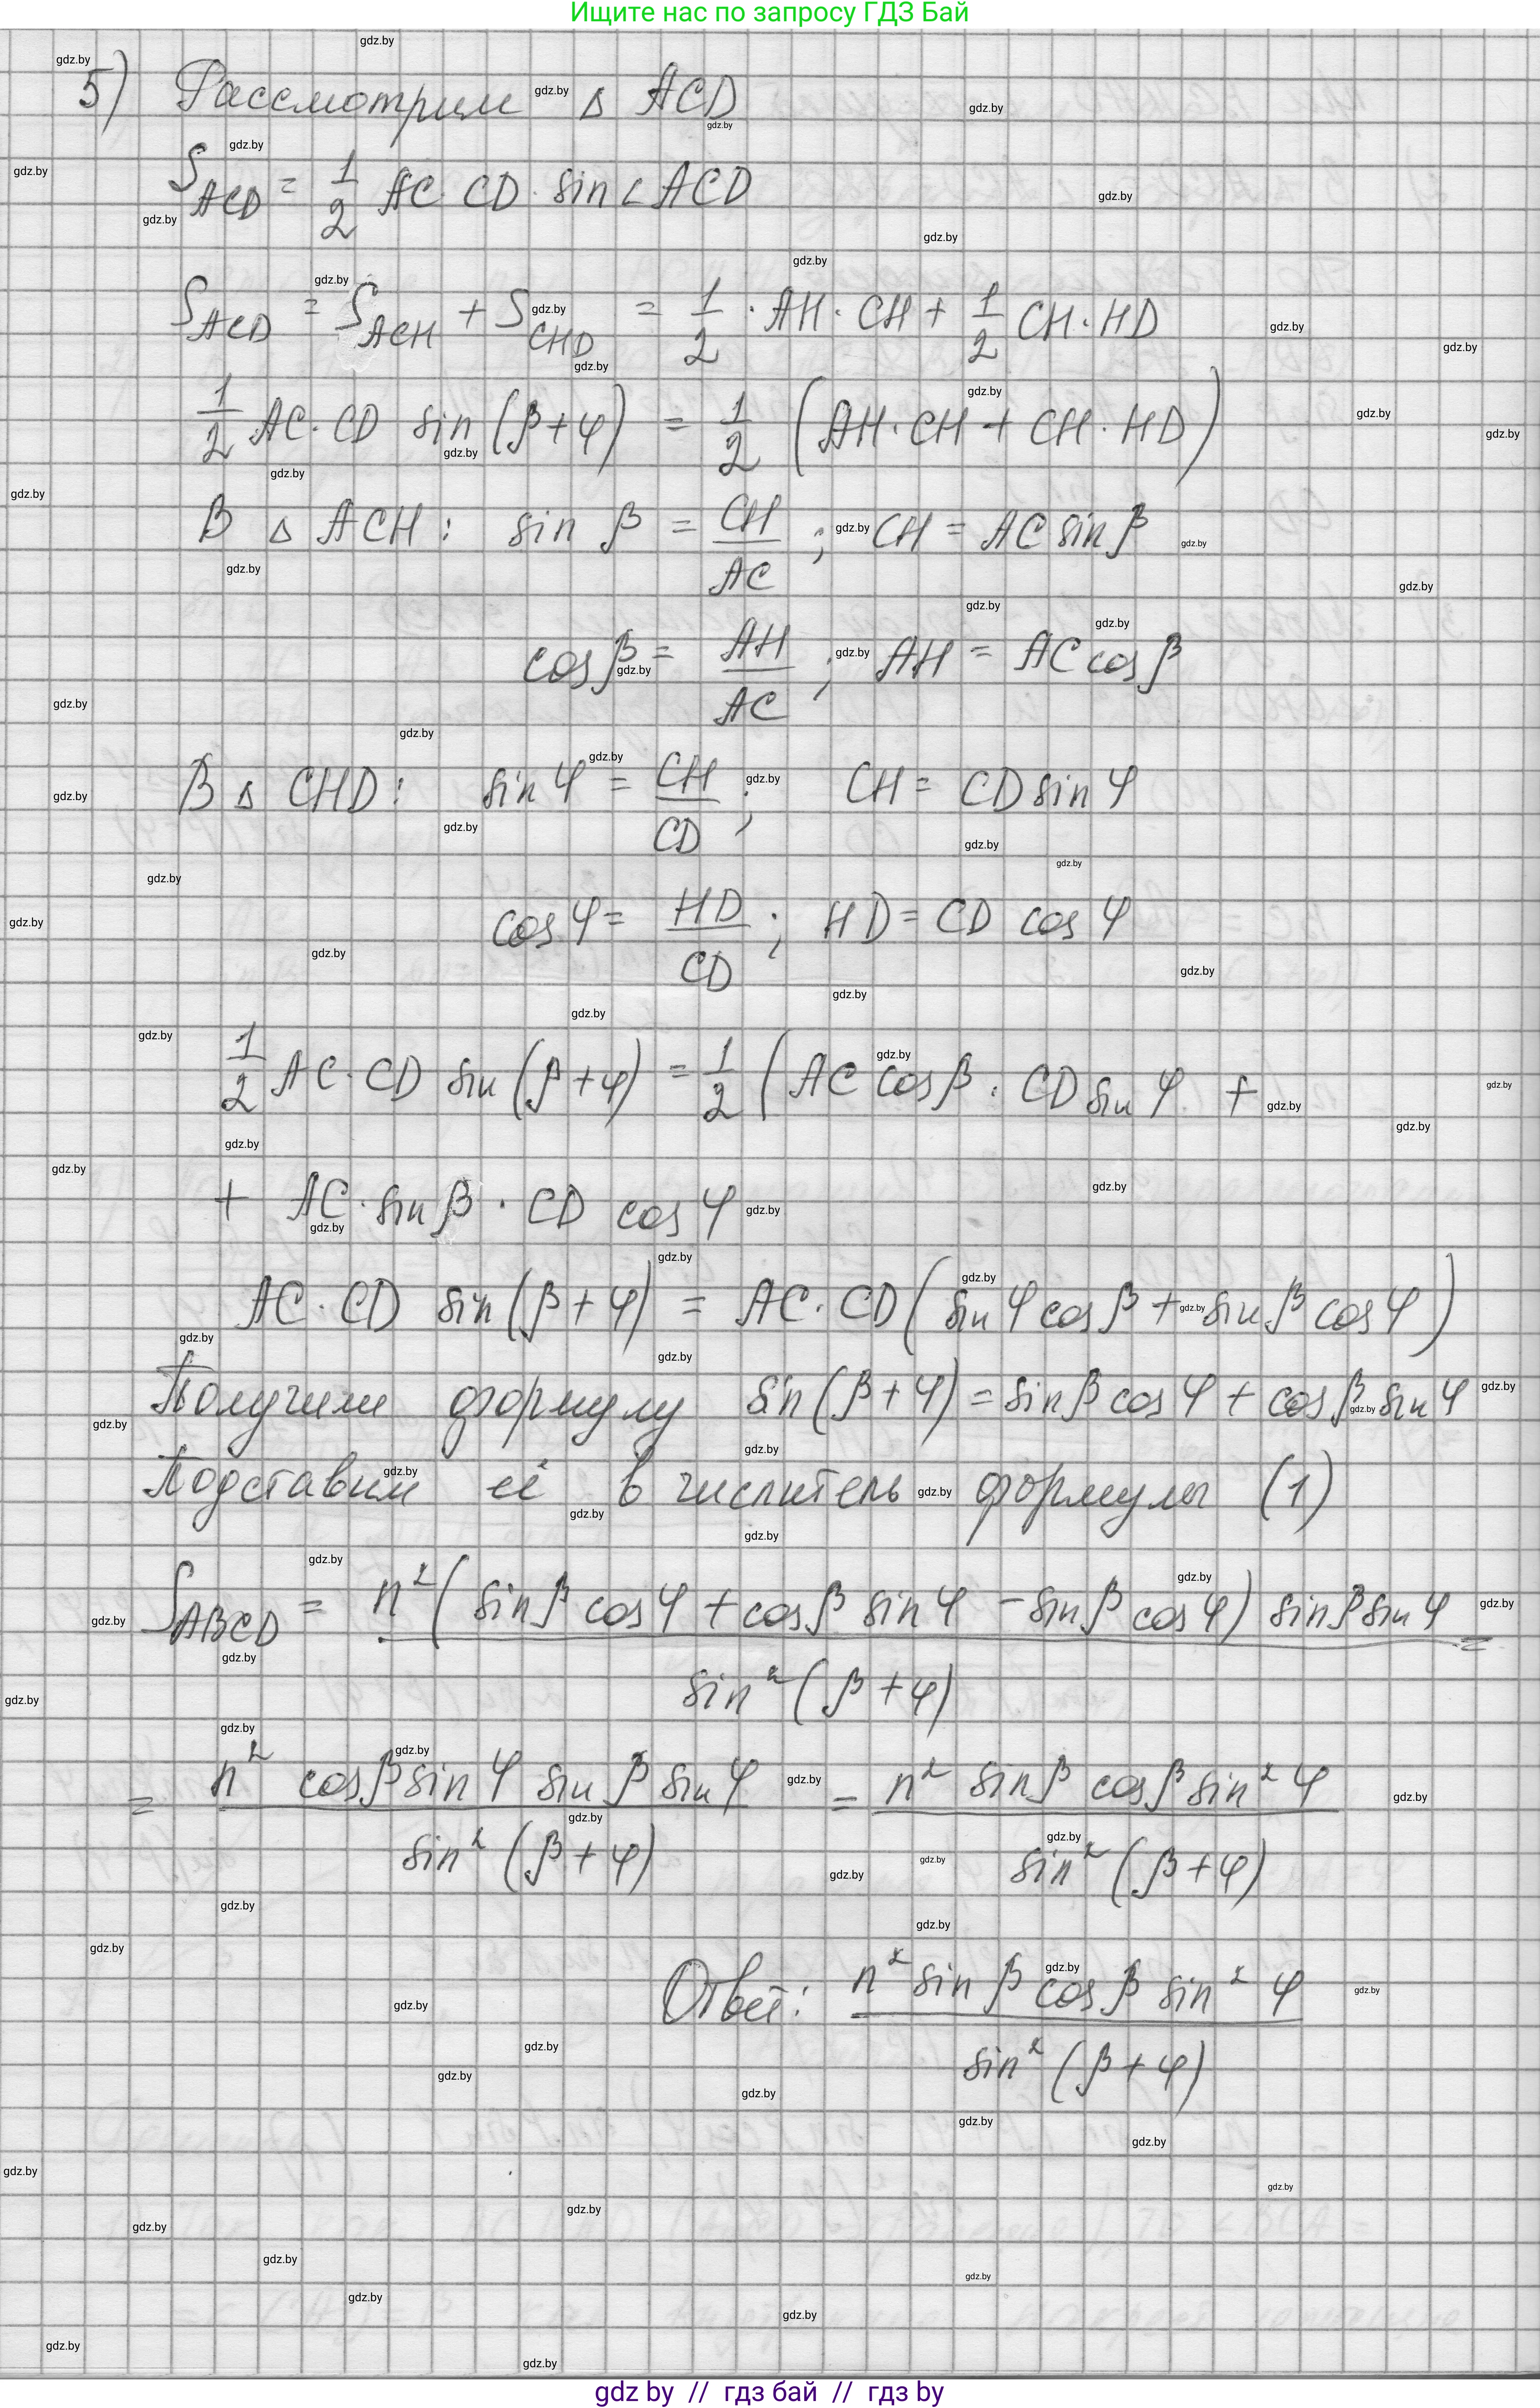 Ищите нас по запросу ГДЗ Бай
5) Рассмотрим △ ACD
S_ACD = 1/2 AC · CD · sin ∠ACD
S_ACD = S_ACH + S_CHD = 1/2 · AH · CH + 1/2 CH · HD
1/2 AC · CD sin (β+φ) = 1/2 (AH · CH + CH · HD)
В △ ACH: sin β = CH/AC ; CH = AC sin β
cos β = AH/AC ; AH = AC cos β
В △ CHD: sin φ = CH/CD ; CH = CD sin φ
cos φ = HD/CD ; HD = CD cos φ
1/2 AC · CD sin (β+φ) = 1/2 (AC cos β · CD sin φ +
+ AC · sin β · CD cos φ
AC · CD sin (β+φ) = AC · CD (sin φ cos β + sin β cos φ)
Получили формулу sin (β+φ) = sin β cos φ + cos β sin φ
Подставим её в числитель формулы (1)
S_ABCD = n² (sin β cos φ + cos β sin φ − sin β cos φ) sin β sin φ / sin² (β+φ) =
= n² cos β sin φ sin β sin φ / sin² (β+φ) = n² sin β cos β sin² φ / sin² (β+φ)
Ответ: n² sin β cos β sin² φ / sin² (β+φ)
gdz by // гдз бай // гдз by